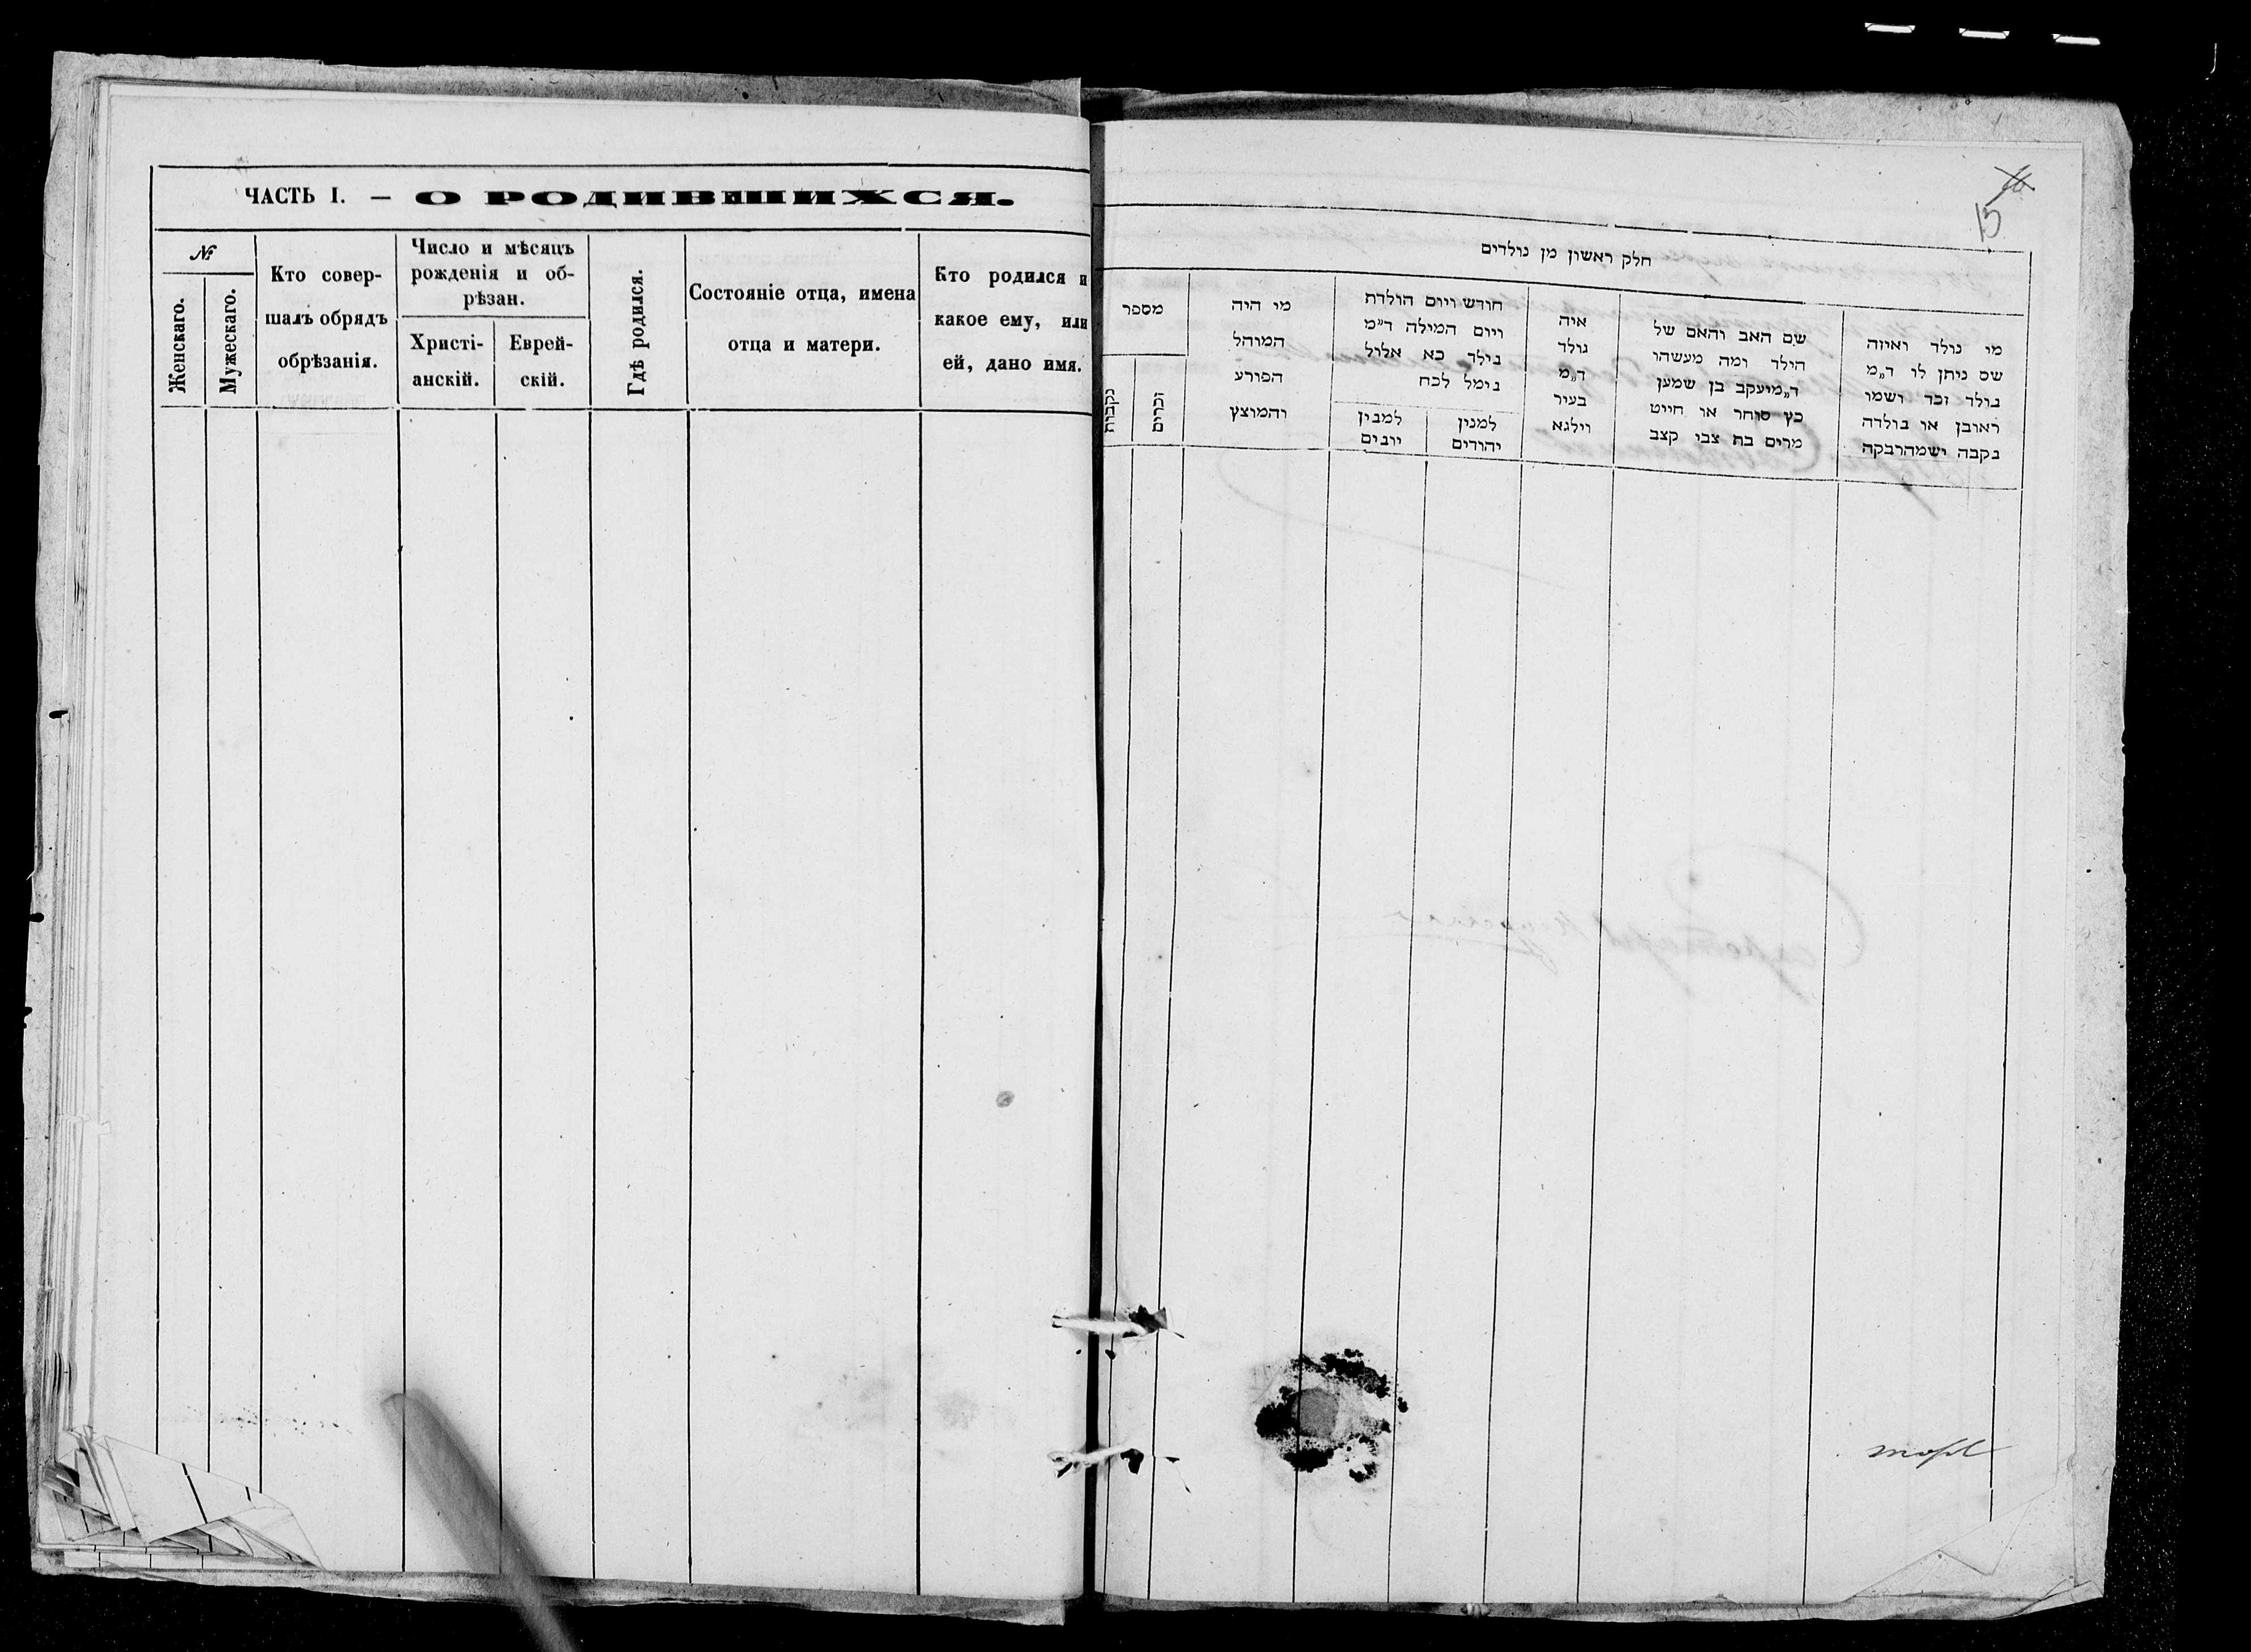 ЧАСТЬ I. — О РОДИВШИХСЯ.
№
Женскаго.
Мужескаго.
Кто совер-
шалъ обрядъ
обрѣзанія.
Число и мѣсяцъ
рожденія и об-
рѣзан.
Христі-
анскій.
Еврей-
скій.
Гдѣ родился.
Состояніе отца, имена
отца и матери.
Кто родился и
какое ему, или
ей, дано имя.
15
חלק ראשון מן נולדים
מי נולד ואיזה
שם ניתן לו ד״מ
נולד זכר ושמו
ראובן או נולדה
נקבה ישמהרבקה
שם האב והאם של
הילד ומה מעשהו
ד״מיעקב בן שמען
כץ סוחר או חייט
מרים בת צבי קצב
איה
נולד
ד״מ
בעיר
וילנא
חודש ויום הולדת
ויום המילה ד״מ
נילד כא אלול
נימל לכח
למנין
יהודים
למנין
יונים
מי היה
המוהל
הפורע
והמוצץ
מספר
זכרים
נקבות